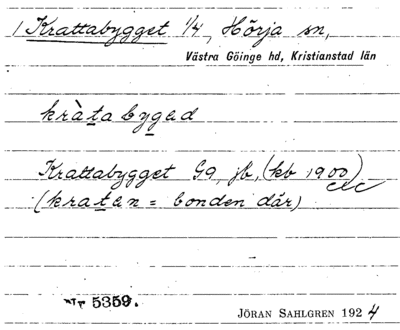 1 Krattabygget 1/4, Hörja sn,
Västra Göinge hd, Kristianstad län
kràtabyged
Krattabygget G9, jb, (kb 1900)
(kratan = bonden där)
Nr 5359.
JÖRAN SAHLGREN 1924